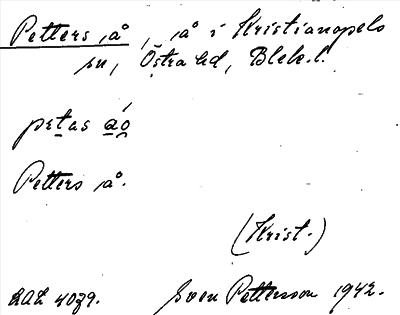 Petters å, å i Kristianopels
sn, Östra hd, Blek. l.
petas åo
Petters å.
(Krist.)
LAL 4079. Sven Petterson 1942.